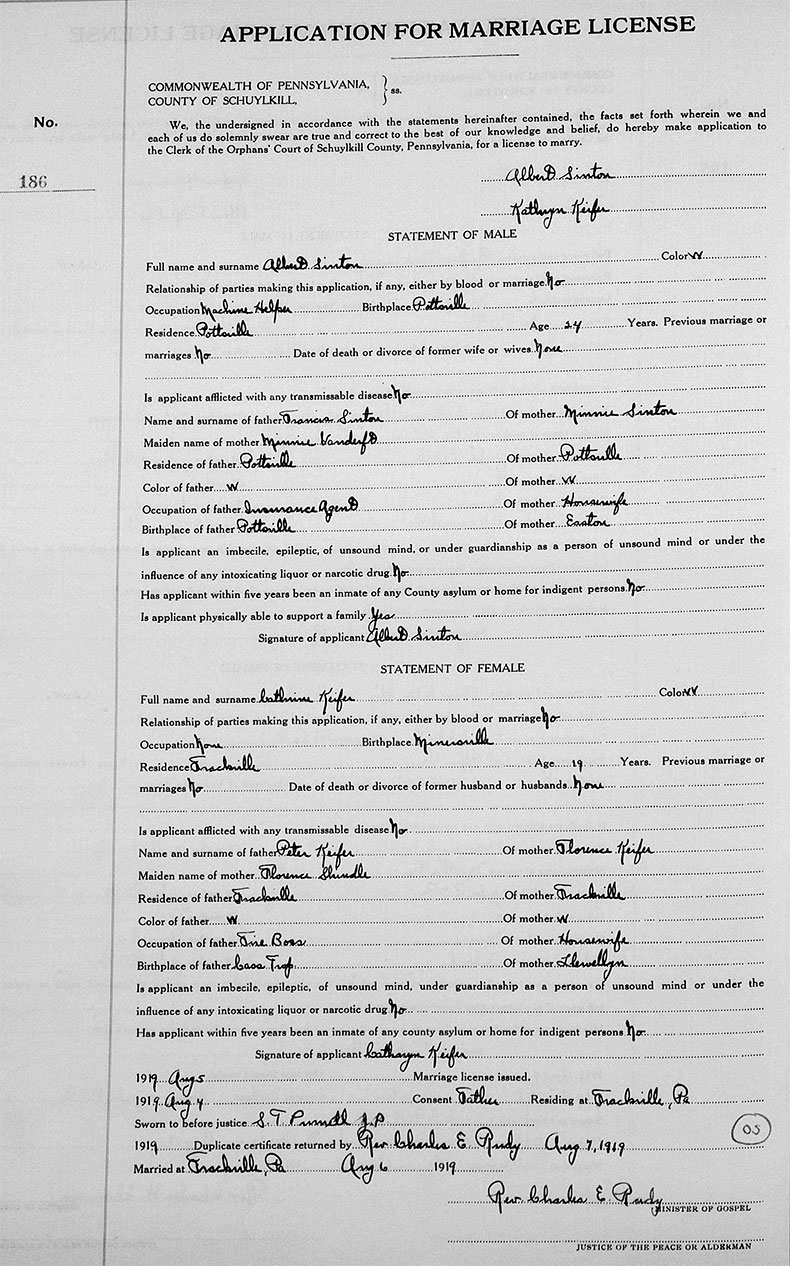 APPLICATION FOR MARRIAGE LICENSE
COMMONWEALTH OF PENNSYLVANIA,
COUNTY OF SCHUYLKILL, } ss.
No.
We, the undersigned in accordance with the statements hereinafter contained, the facts set forth wherein we and
each of us do solemnly swear are true and correct to the best of our knowledge and belief, do hereby make application to
the Clerk of the Orphans' Court of Schuylkill County, Pennsylvania, for a license to marry.
186
Albert Sinton
Kathryn Keifer
STATEMENT OF MALE
Full name and surname Albert Sinton Color W
Relationship of parties making this application, if any, either by blood or marriage No
Occupation Machine Helper Birthplace Pottsville
Residence Pottsville Age 24 Years. Previous marriage or
marriages No Date of death or divorce of former wife or wives None
Is applicant afflicted with any transmissable disease No
Name and surname of father Francis Sinton Of mother Minnie Sinton
Maiden name of mother Minnie
Residence of father Pottsville Of mother Pottsville
Color of father W Of mother W
Occupation of father Insurance Agent Of mother Housewife
Birthplace of father Pottsville Of mother Easton
Is applicant an imbecile, epileptic, of unsound mind, or under guardianship as a person of unsound mind or under the
influence of any intoxicating liquor or narcotic drug No
Has applicant within five years been an inmate of any County asylum or home for indigent persons No
Is applicant physically able to support a family Yes
Signature of applicant Albert Sinton
STATEMENT OF FEMALE
Full name and surname Cathrine Keifer Color W
Relationship of parties making this application, if any, either by blood or marriage No
Occupation None Birthplace Minersville
Residence Frackville Age 19 Years. Previous marriage or
marriages No Date of death or divorce of former husband or husbands None
Is applicant afflicted with any transmissable disease No
Name and surname of father Peter Keifer Of mother Florence Keifer
Maiden name of mother Florence Shindle
Residence of father Frackville Of mother Frackville
Color of father W Of mother W
Occupation of father Fire Boss Of mother Housewife
Birthplace of father Cass Twp Of mother Llewellyn
Is applicant an imbecile, epileptic, of unsound mind, under guardianship as a person of unsound mind or under the
influence of any intoxicating liquor or narcotic drug No
Has applicant within five years been an inmate of any county asylum or home for indigent persons No
Signature of applicant Catharyn Keifer
1919 Aug 5 Marriage license issued.
1919 Aug 4 Consent Father Residing at Frackville, Pa
Sworn to before justice S. T. J.P
1919 Duplicate certificate returned by Rev. Charles E. Rudy Aug 7, 1919
05
Married at Frackville, Pa Aug 6 1919
Rev. Charles E. Rudy
MINISTER OF GOSPEL
JUSTICE OF THE PEACE OR ALDERMAN